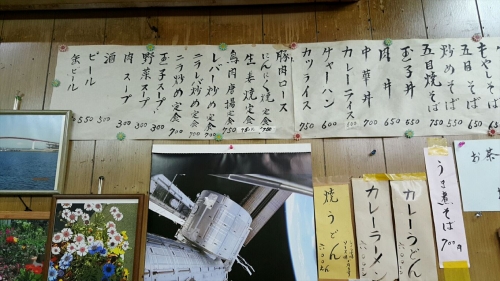 もやしそば 650
五目そば 650
炒めそば 550
五目焼そば 650
玉子丼 650
肉丼 650
中華丼 700
カレーライス
チャーハン 600
カツライス 750
豚肉ロース
にんにく焼定食 750
生姜焼定食 750
鳥肉唐揚定食 750
レバー炒め定食 700
ニラレバ炒め定食 750
ニラ炒め定食 700
玉子スープ 300
野菜スープ 300
肉スープ 300
酒
ビール 550
缶ビール
お茶
うま煮そば 700円
カレーうどん
カレーラーメン
焼うどん